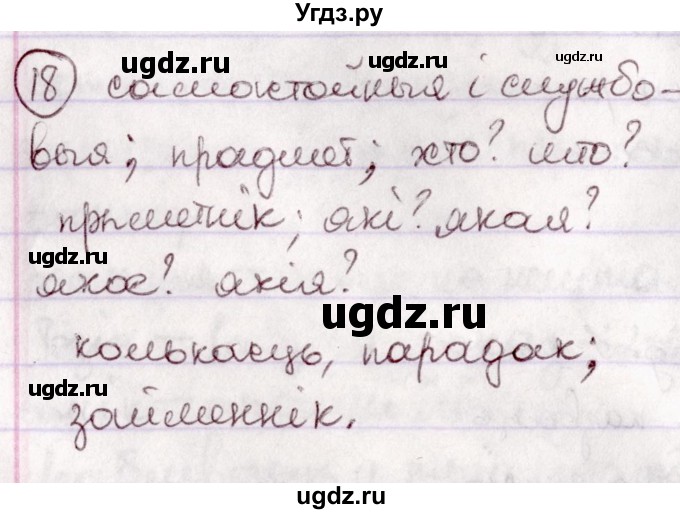 Угдз.ру
18 самастойныя і службо-
выя; прадмет; хто? што?
прыметнік; які? якая?
якое? якія?
колькасць, парадак;
займеннік.
ugdz.ru
ugdz.ru
ugdz.ru
ugdz.ru
ugdz.ru
ugdz.ru
ugdz.ru
ugdz.ru